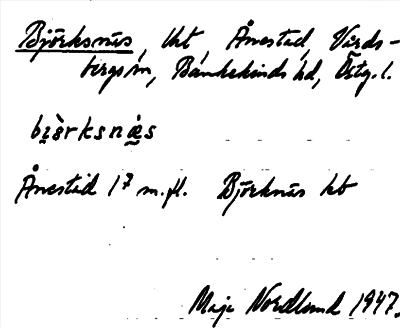 Björksnäs, Uht, Ånestad, Vårds-
bergs sn, Bankekinds hd, Östg. l.
bi̯ö̀rksnä̀s
Ånestad 1⁷ m.fl. Björknäs kb
Maja Nordlund 1947.